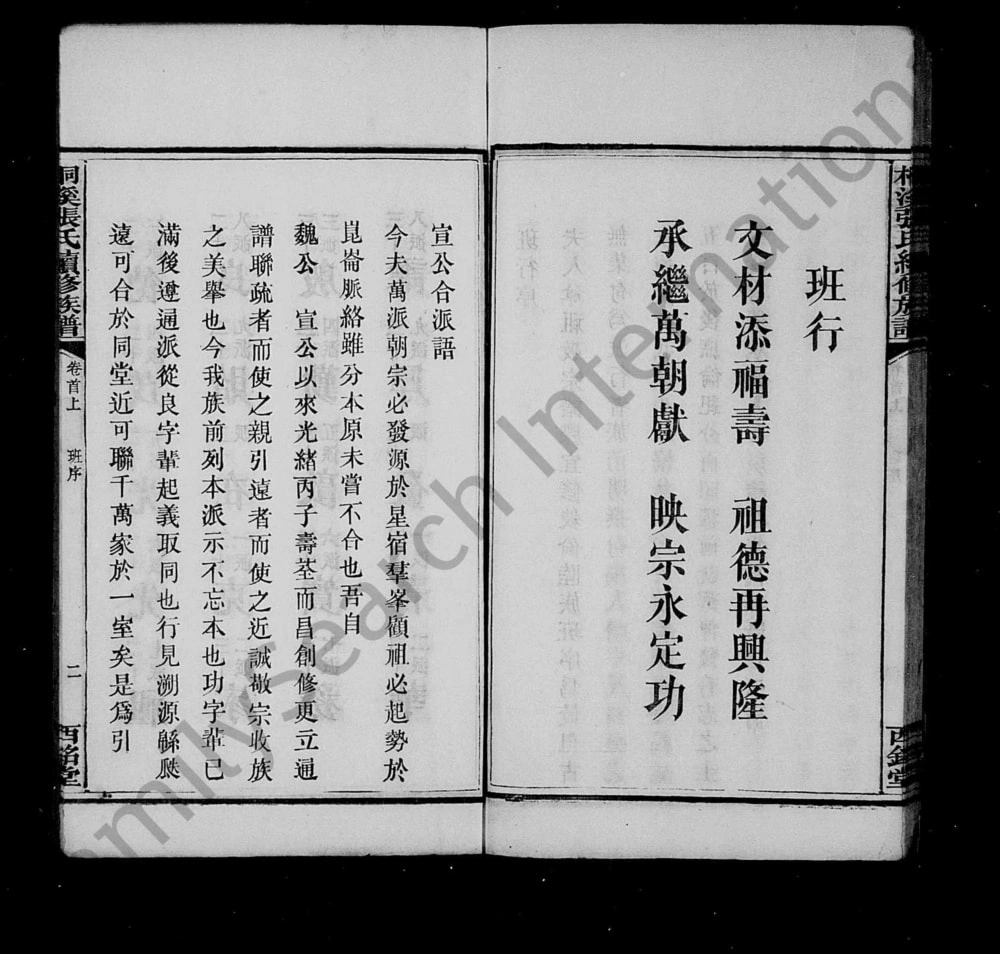 班行
文材添福壽　祖德再興隆
承繼萬朝獻　映宗永定功
宣公合派語
今夫萬派朝宗必發源於星宿羣峯顧祖必起勢於
崑崙脈絡雖分本原未嘗不合也吾自
魏公　宣公以來光緒丙子壽荃而昌創修更立通
譜聯疏者而使之親引遠者而使之近誠敬宗收族
之美舉也今我族前列本派示不忘本也功字輩已
滿後遵通派從良字輩起義取同也行見溯源縣瓞
遠可合於同堂近可聯千萬家於一室矣是為引
張氏續修族譜
卷首上
班序
二
西銘堂
西銘堂
FamilySearch International